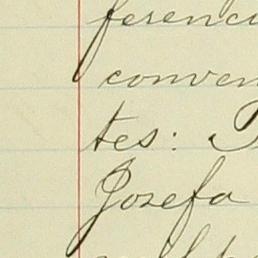 ferenci
conven
tes:
Josefa